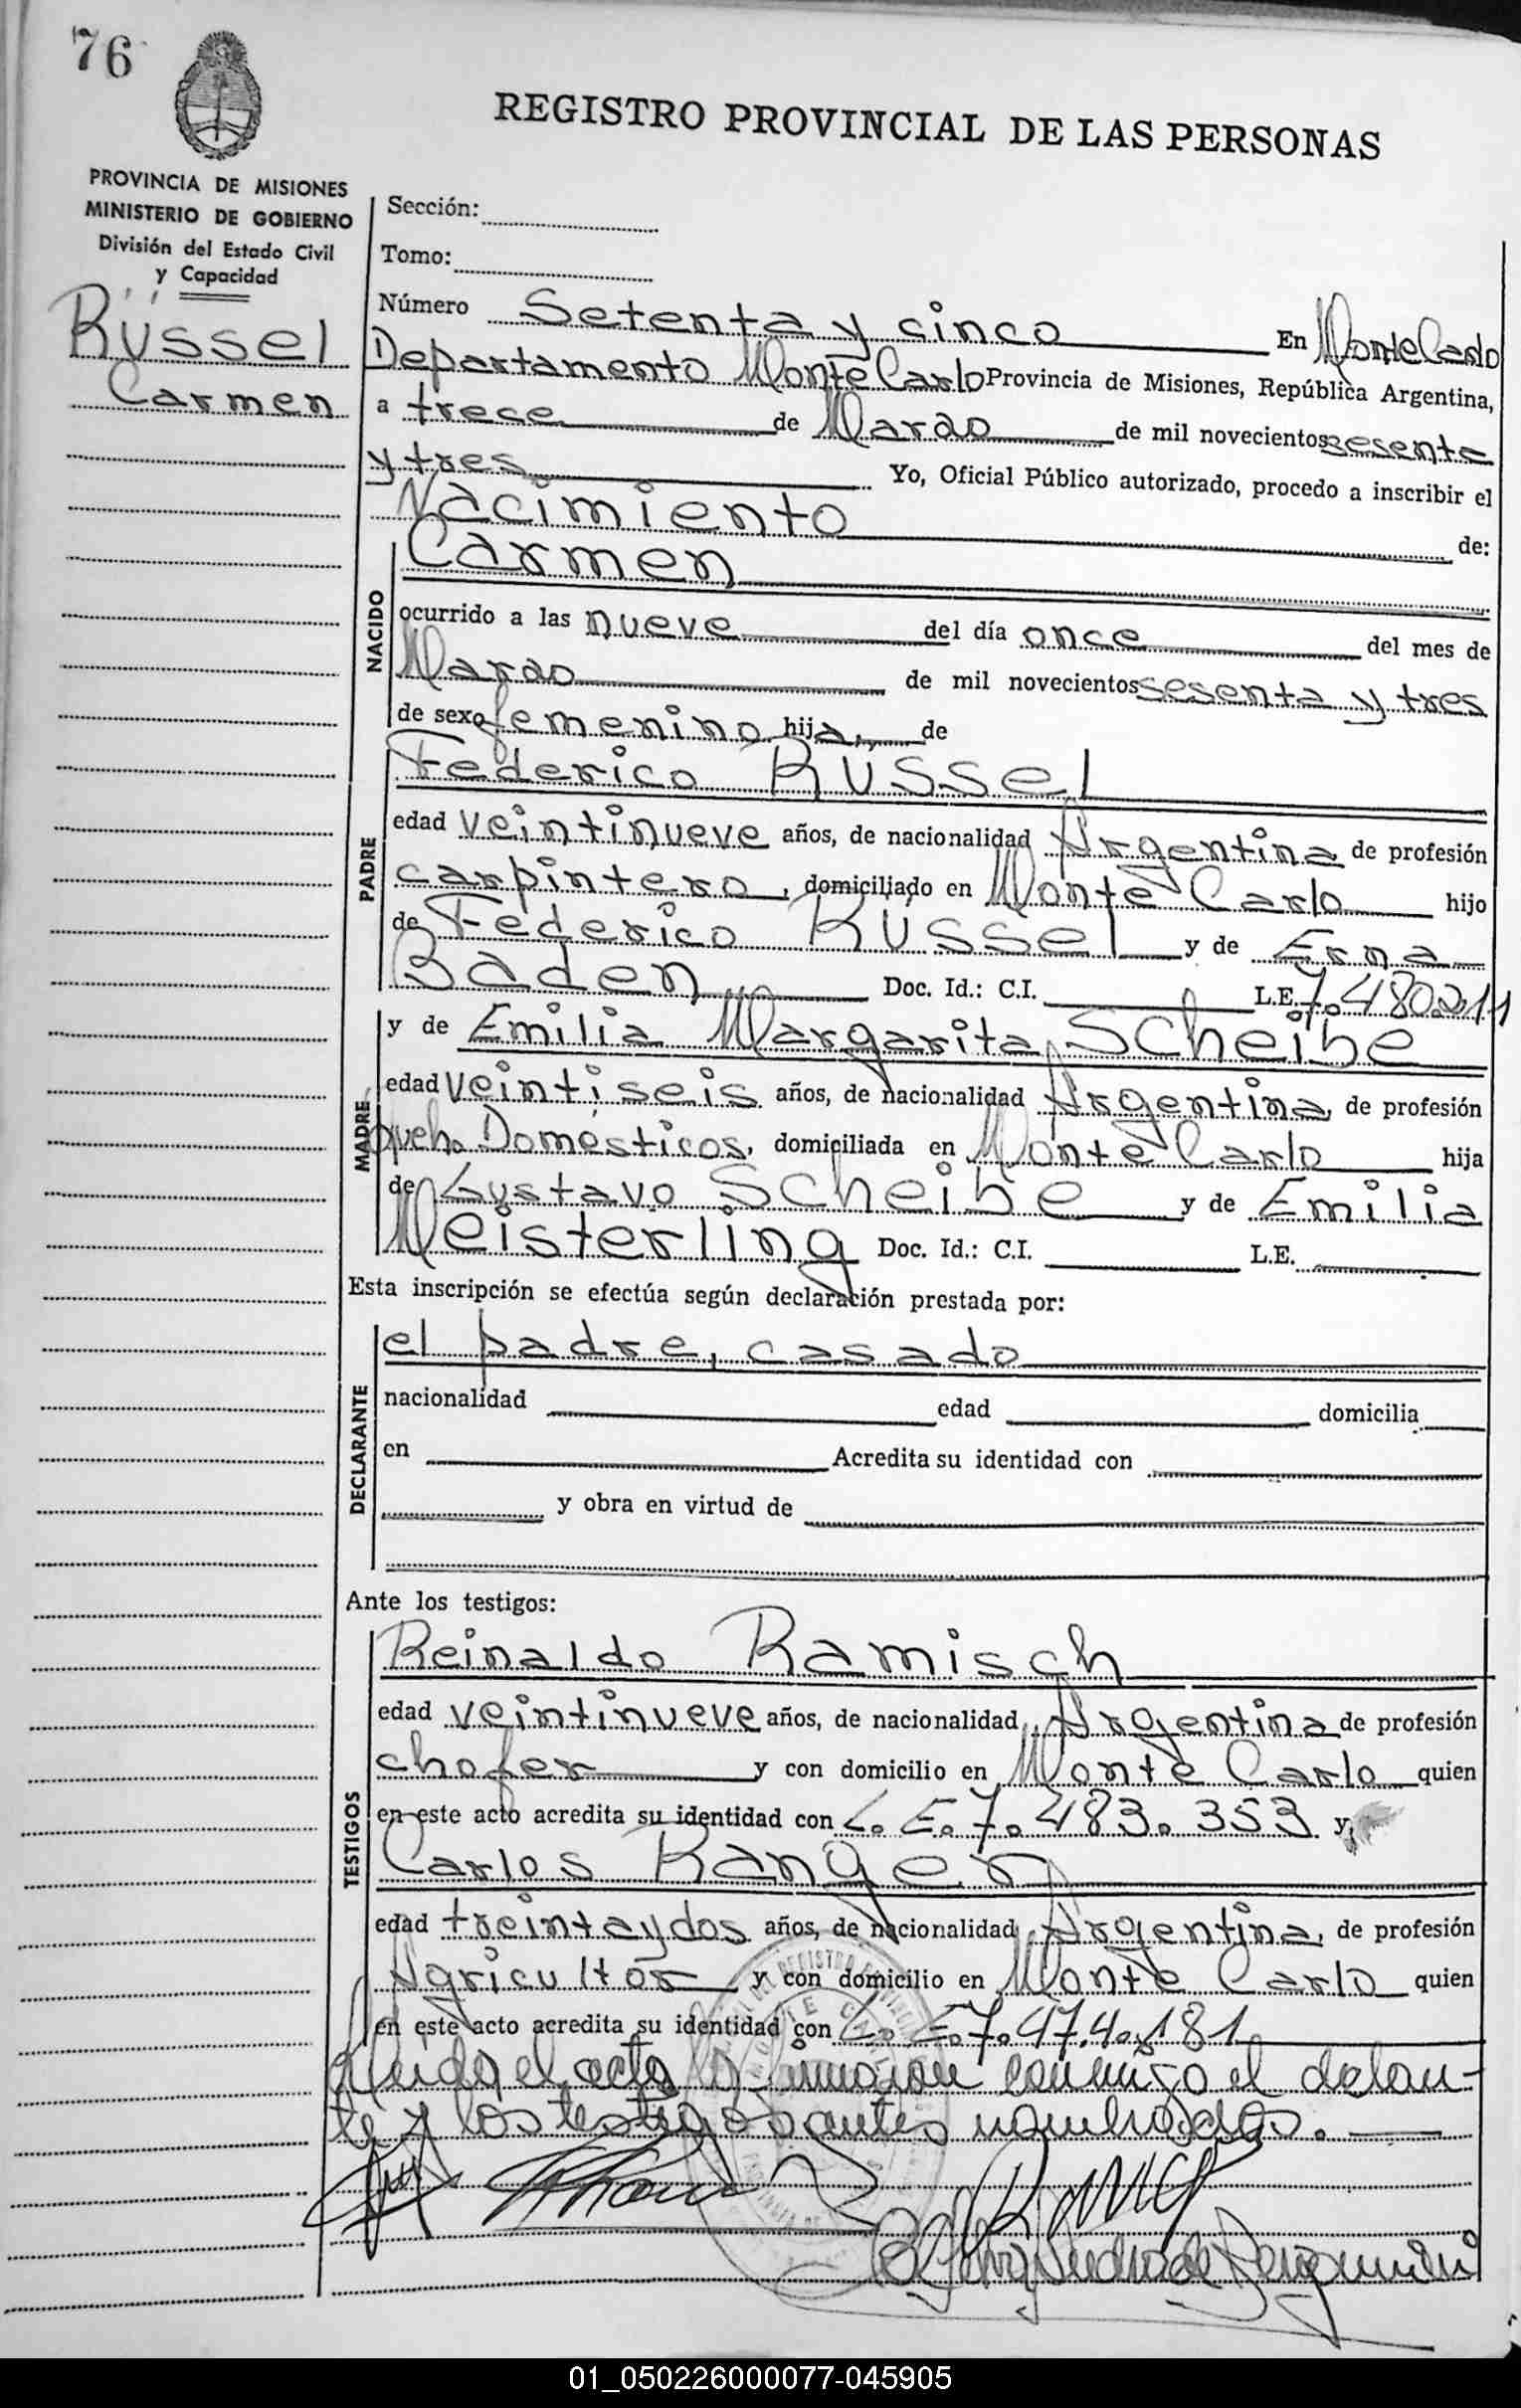 76
REGISTRO PROVINCIAL DE LAS PERSONAS
PROVINCIA DE MISIONES
MINISTERIO DE GOBIERNO
División del Estado Civil
y Capacidad
Rüssel
Carmen
Sección:
Tomo:
Número Setenta y cinco En Monte Carlo
Departamento Monte Carlo Provincia de Misiones, República Argentina,
a trece de Marzo de mil novecientos sesenta
y tres Yo, Oficial Público autorizado, procedo a inscribir el
Nacimiento de:
Carmen
NACIDO
ocurrido a las nueve del día once del mes de
Marzo de mil novecientos sesenta y tres
de sexo femenino hija, de
Federico RUSSel
PADRE
edad veintinueve años, de nacionalidad Argentina de profesión
carpintero, domiciliado en Monte Carlo hijo
de Federico RUSSel y de Erna
Baden Doc. Id.: C.I. L.E. 7.480.211
y de Emilia Margarita Scheibe
MADRE
edad veintiseis años, de nacionalidad Argentina, de profesión
queh. Domésticos, domiciliada en Monte Carlo hija
de Gustavo Scheibe y de Emilia
Meisterling Doc. Id.: C.I. L.E.
Esta inscripción se efectúa según declaración prestada por:
el padre, casado
DECLARANTE
nacionalidad edad domicilia
en Acredita su identidad con
y obra en virtud de
Ante los testigos:
Reinaldo Ramisch
TESTIGOS
edad veintinueve años, de nacionalidad Argentina de profesión
chofer y con domicilio en Monte Carlo quien
en este acto acredita su identidad con L. E. 7. 483. 353 y,
Carlos Ranger
edad treinta y dos años, de nacionalidad Argentina, de profesión
Agricultor y con domicilio en Monte Carlo quien
en este acto acredita su identidad con L. E. 7. 474. 181
Leida el acta la firmaron conmigo el declaran-
te y los testigos antes nombrados.
01_050226000077-045905